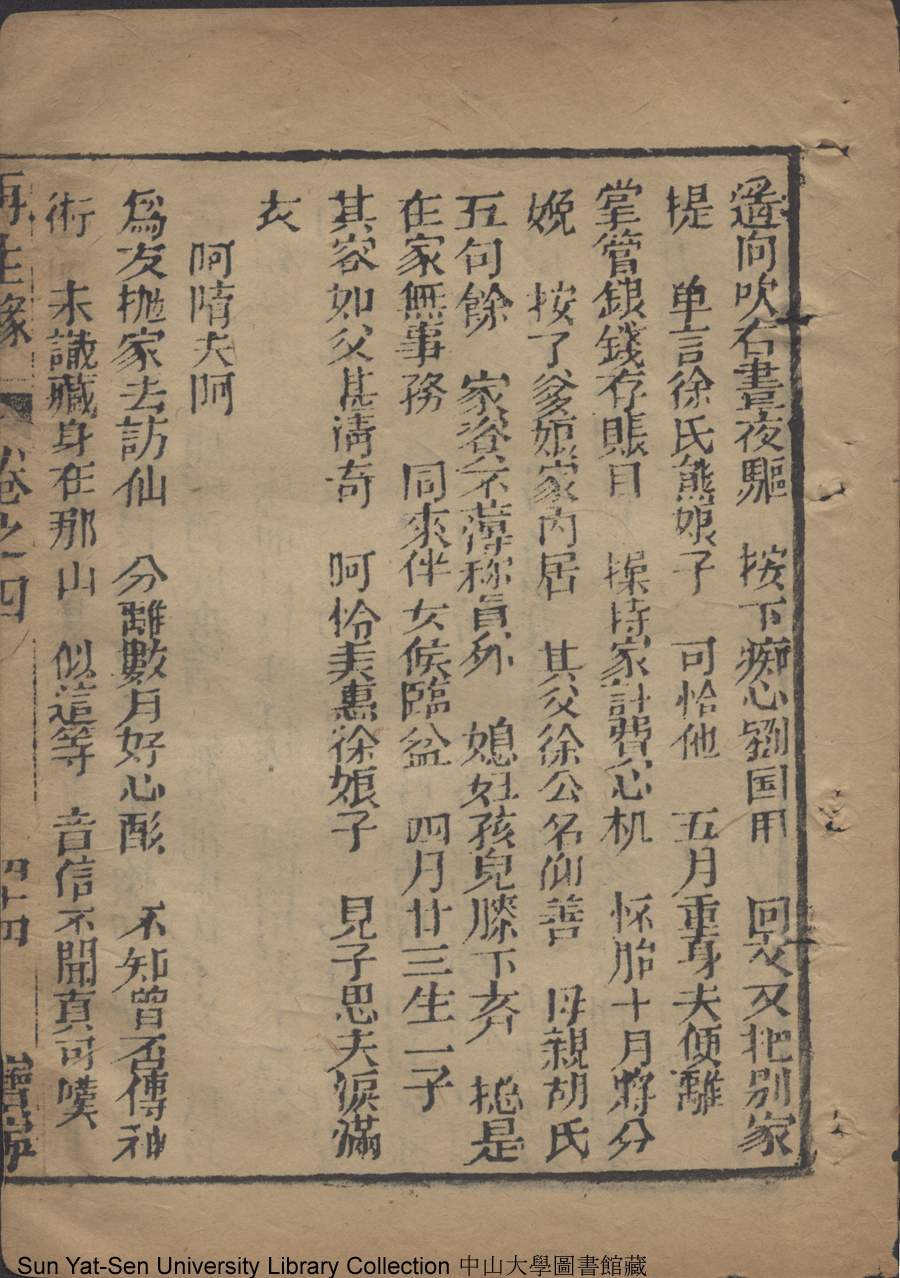 逕向吹台晝夜驅　按下痴心劉国用　回文又把别家
提　单言徐氏熊娘子　可恰他　五月重身夫便離
掌管銀錢存賬目　操持家計費心机　怀胎十月將分
娩　按了爹娘家内居　其父徐公名仰善　母親胡氏
五旬餘　家資不薄称員外　媳妇孩兒膝下齐　捴是
在家無事務　同來伴女候臨盆　四月廿三生一子
其容如父甚清奇　呵恰美惠徐娘子　見子思夫淚滿
衣
呵唷夫呵
爲友抛家去訪仙　分離數月好心酸　不知曾否傳神
術　未識藏身在那山　似這等　音信不聞真可嘆
再生緣　卷之四　四十四　寶寧
Sun Yat-Sen University Library Collection 中山大學圖書館藏